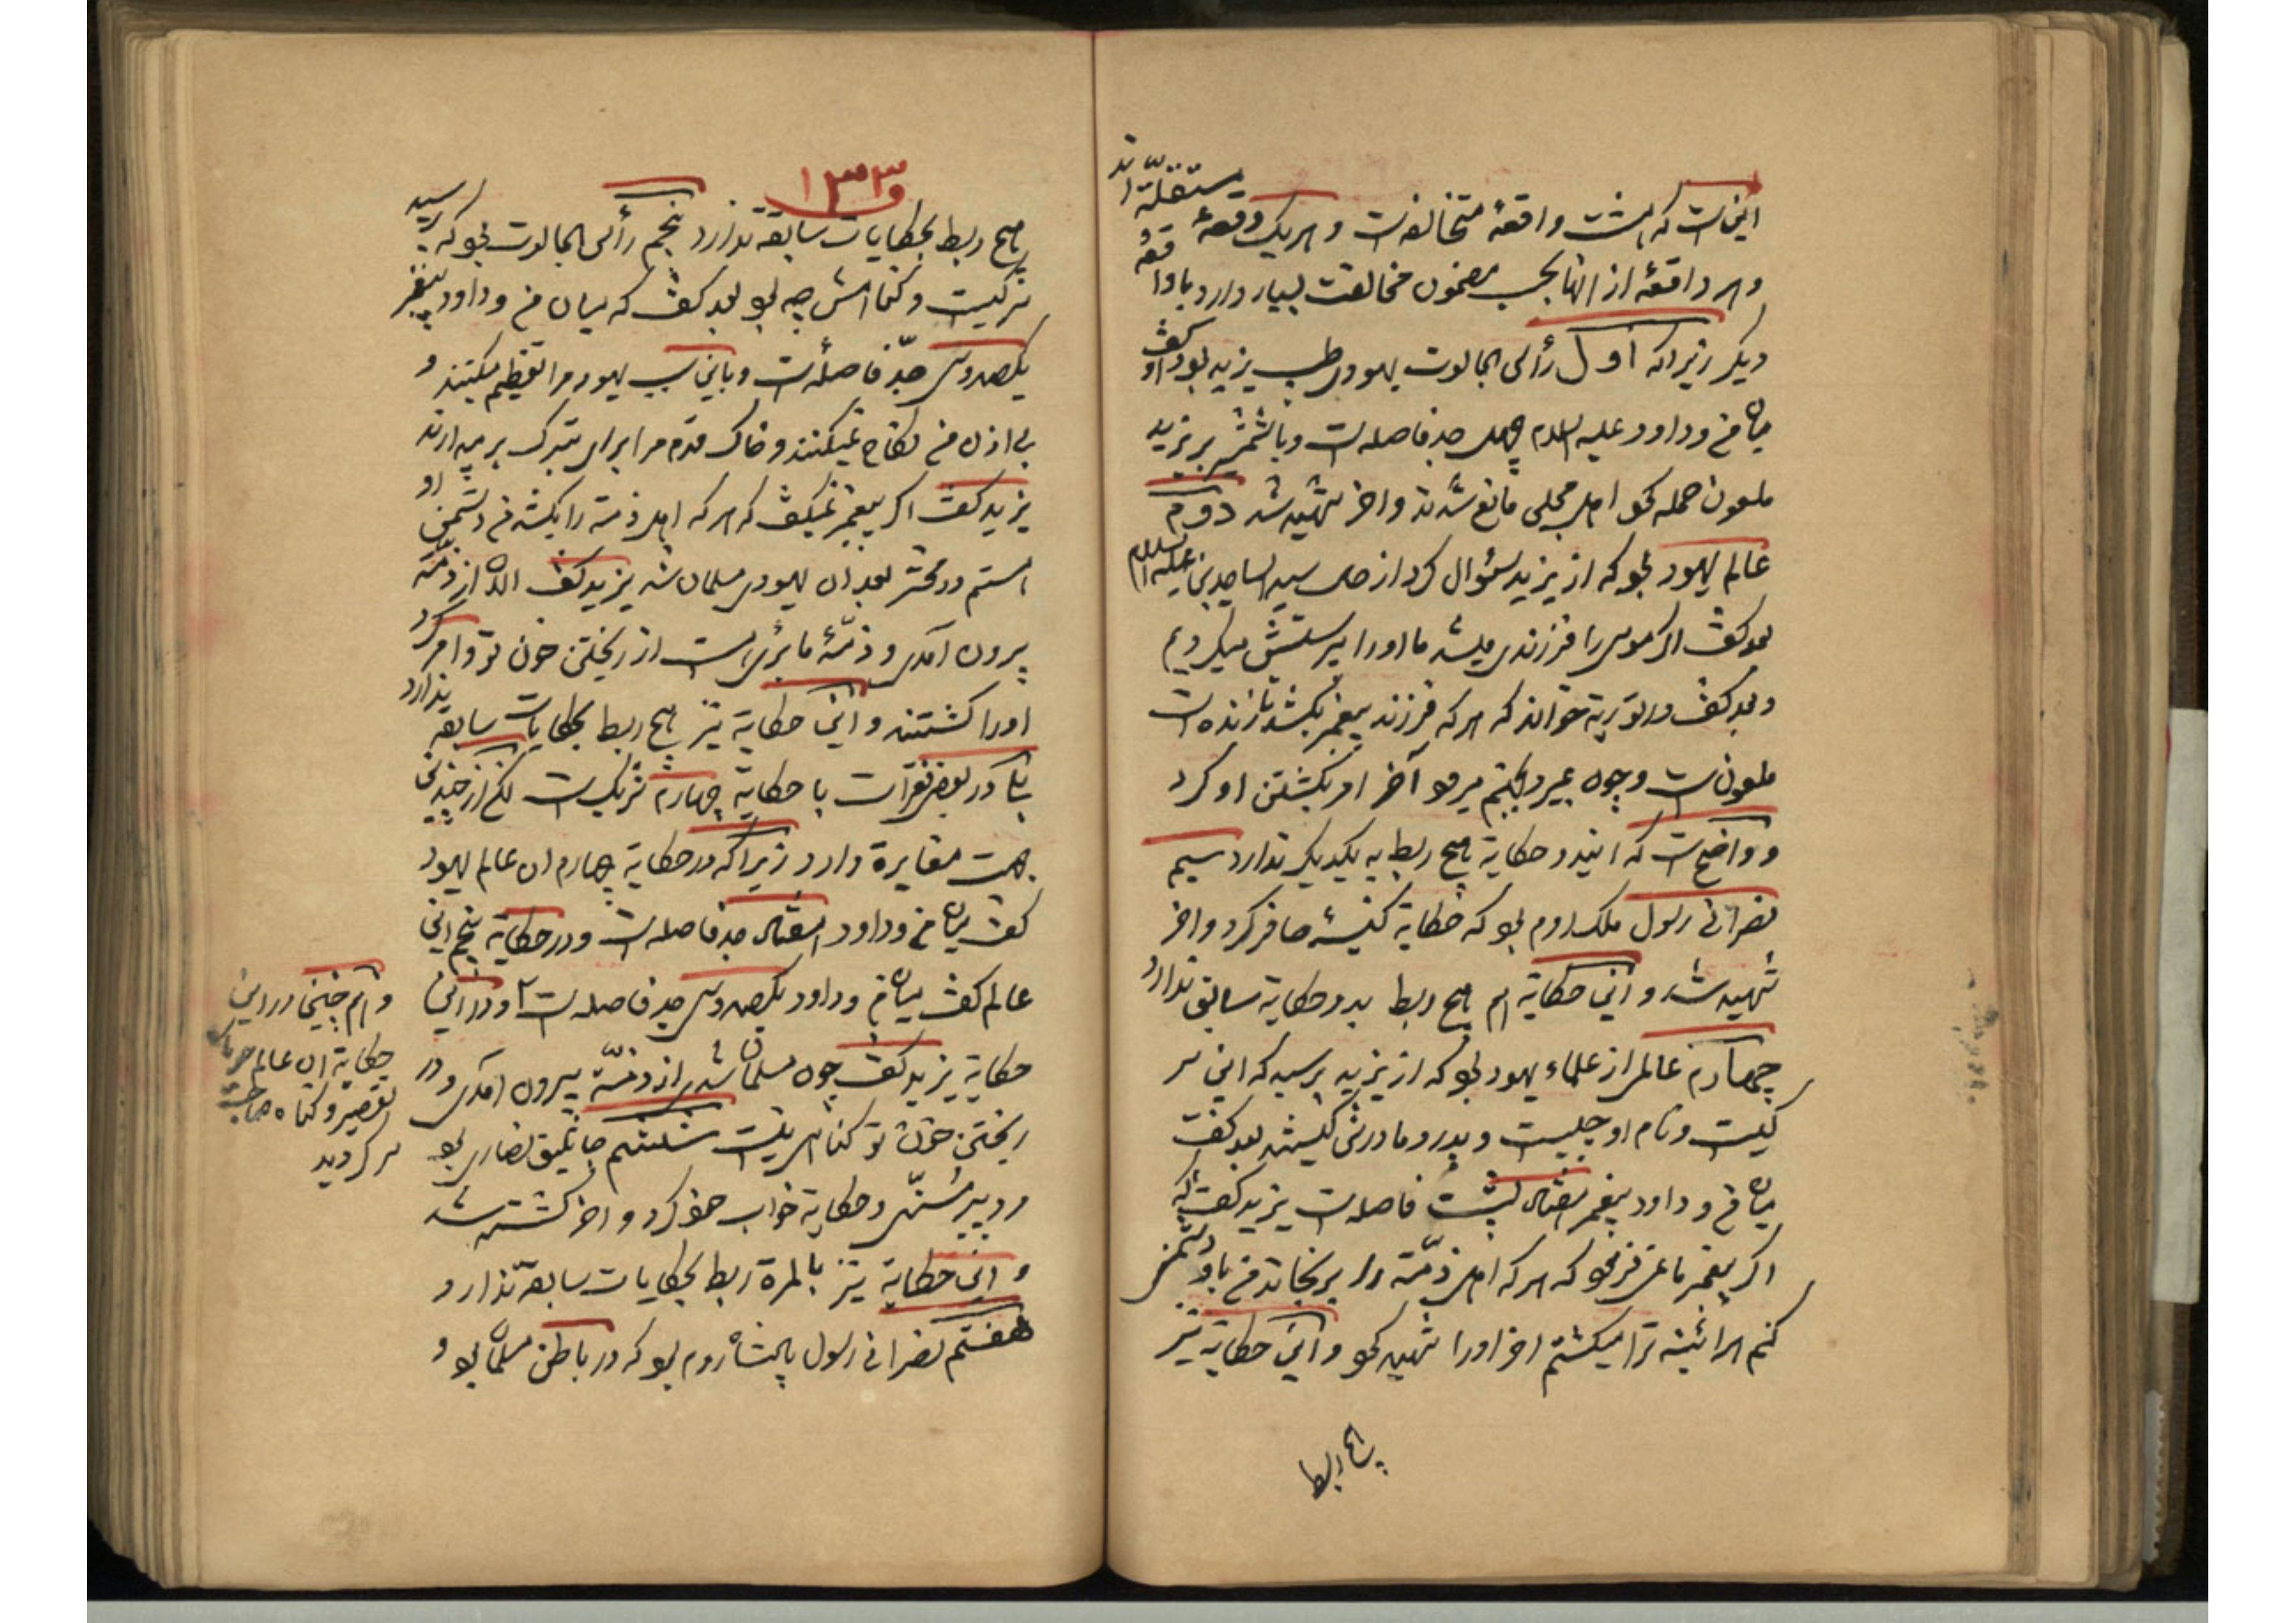 اینست که هشت واقعهٔ متخالفه است و هر یک وقعهٔ مستقله اند
و هر واقعهٔ از انها بحسب مضمون مخالفت بسیار دارد با واقعهٔ
دیگر زیرا که اول رأس الجالوت یهودی طبیب یزید بود و گفت
میان من و داود علیه السلام چهل جد فاصله است و با شمشیر بر یزید
ملعون حمله نمود اهل مجلس مانع شدند و اخر شهید شد دویم
عالم یهود بود که از یزید سئوال کرد از حال سید الساجدین علیه السلام
بعد گفت اگر موسی را فرزندی میشد ما او را پرستش میکردیم
و بعد گفت در توریة خواندم که هر که فرزند پیغمبر بکشد تا زنده است
ملعونست و چون بمیرد بجهنم میرود آخر امر بکشتن او کرد
و واضح است که ایندو حکایة هیچ ربط به یکدیگر ندارد سیم
نصرانی رسول ملک روم بود که حکایة کنیسهٔ حافر کرد و اخر
شهید شد و این حکایة هم هیچ ربط بدو حکایة سابق ندارد
چهارم عالمی از علماء یهود بود که از یزید پرسید که این سر
کیست و نام او چیست و پدر و مادرش کیستند بعد گفت
میان من و داود پیغمبر هفتاد پشت فاصله است یزید گفت که
اگر پیغمبر ما نمی فرمود که هر که اهل ذمّة را برنجاند من با او دشمنی
کنم هر آئینه ترا میکشتم اخر او را شهید نمود و این حکایة نیز
هیچ ربط
۱۳۳
هیچ ربط بحکایات سابقه ندارد پنجم رأس الجالوت بود که پرسید
سر کیست و گناهش چه بود بعد گفت که میان من و داود پیغمبر
یکصد و سی جدّ فاصله است و باین سبب یهود مرا تعظیم میکنند و
بی اذن من نکاح نمیکنند و خاک قدم مرا برای تبرک بر میدارند
یزید گفت اگر پیغمبر نمیگفت که هر که اهل ذمة را بکشد من دشمن او
هستم در محشر بعد ان یهودی مسلمان شد یزید گفت الان از ذمّه
بیرون آمدی و ذمّهٔ ما بری است از ریختن خون تو و امر کرد
او را کشتند و این حکایة نیز هیچ ربط بحکایات سابقه ندارد
در بعض فقرات با حکایة چهارم شریک است لکن از چندین
جهت مغایرة دارد زیرا که در حکایة چهارم ان عالم یهود
گفت میان من و داود هفتاد جد فاصله است و در حکایة پنجم این
عالم گفت میان من و داود یکصد و سی جد فاصله است و در این
حکایة یزید گفت چون مسلمان شدی از ذمّة بیرون امدی و در
ریختن خون تو گناهی نیست ششم جاثلیق نصاری بود
مرد پیر مسنّی و حکایة خواب خود کرد و اخر کشته شد
و این حکایة نیز بالمرة ربط بحکایات سابقه ندارد
هفتم نصرانی رسول پادشاه روم بود که در باطن مسلمان بود و
و هم چنین در این
حکایة ان عالم
تقصیر و گناه صاحب
سر گردید